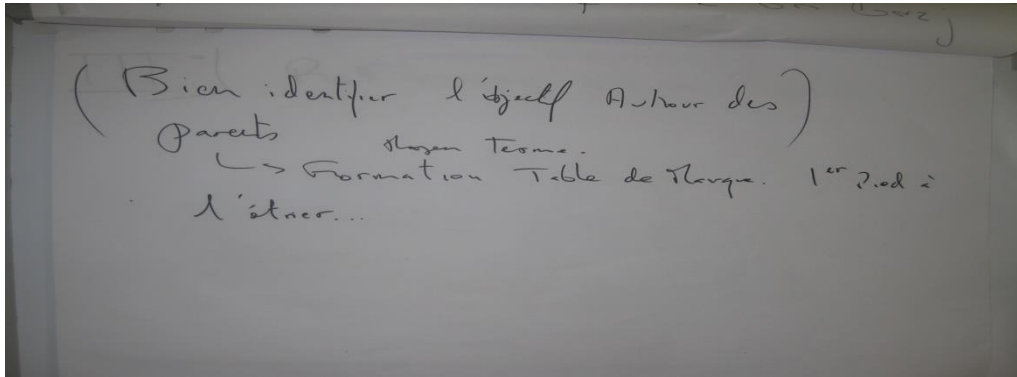 ( Bien identifier l'objectif Autour des )
parents
Moyen Terme.
↳ Formation Table de Marque. 1er Pied à
l'étrier...